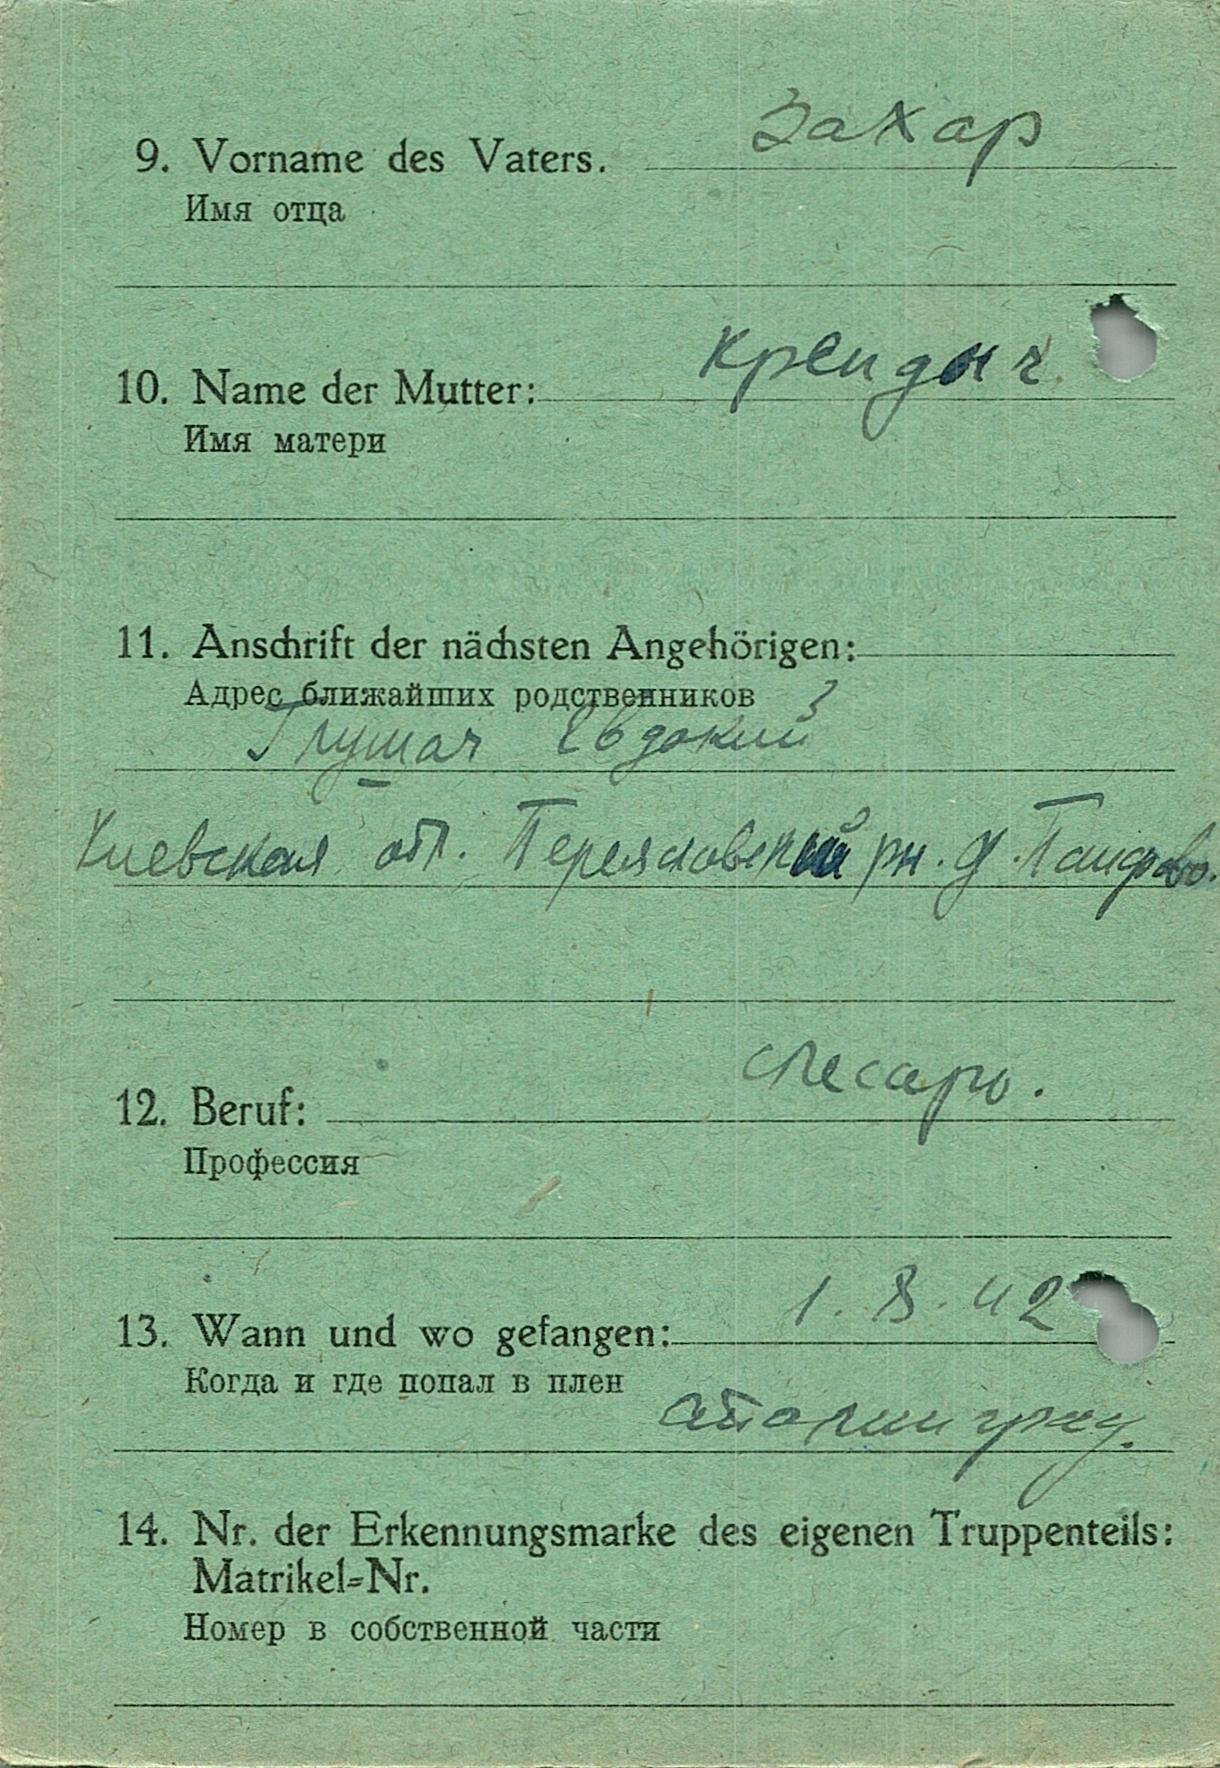 9. Vorname des Vaters. Захар
Имя отца
10. Name der Mutter: Крендыч
Имя матери
11. Anschrift der nächsten Angehörigen:
Адрес ближайших родственников
Глушач Евдокий
Киевская обл. Переясловский рн. д.
12. Beruf: слесарь.
Профессия
13. Wann und wo gefangen: 1. 8. 42
Когда и где попал в плен
14. Nr. der Erkennungsmarke des eigenen Truppenteils:
Matrikel=Nr.
Номер в собственной части